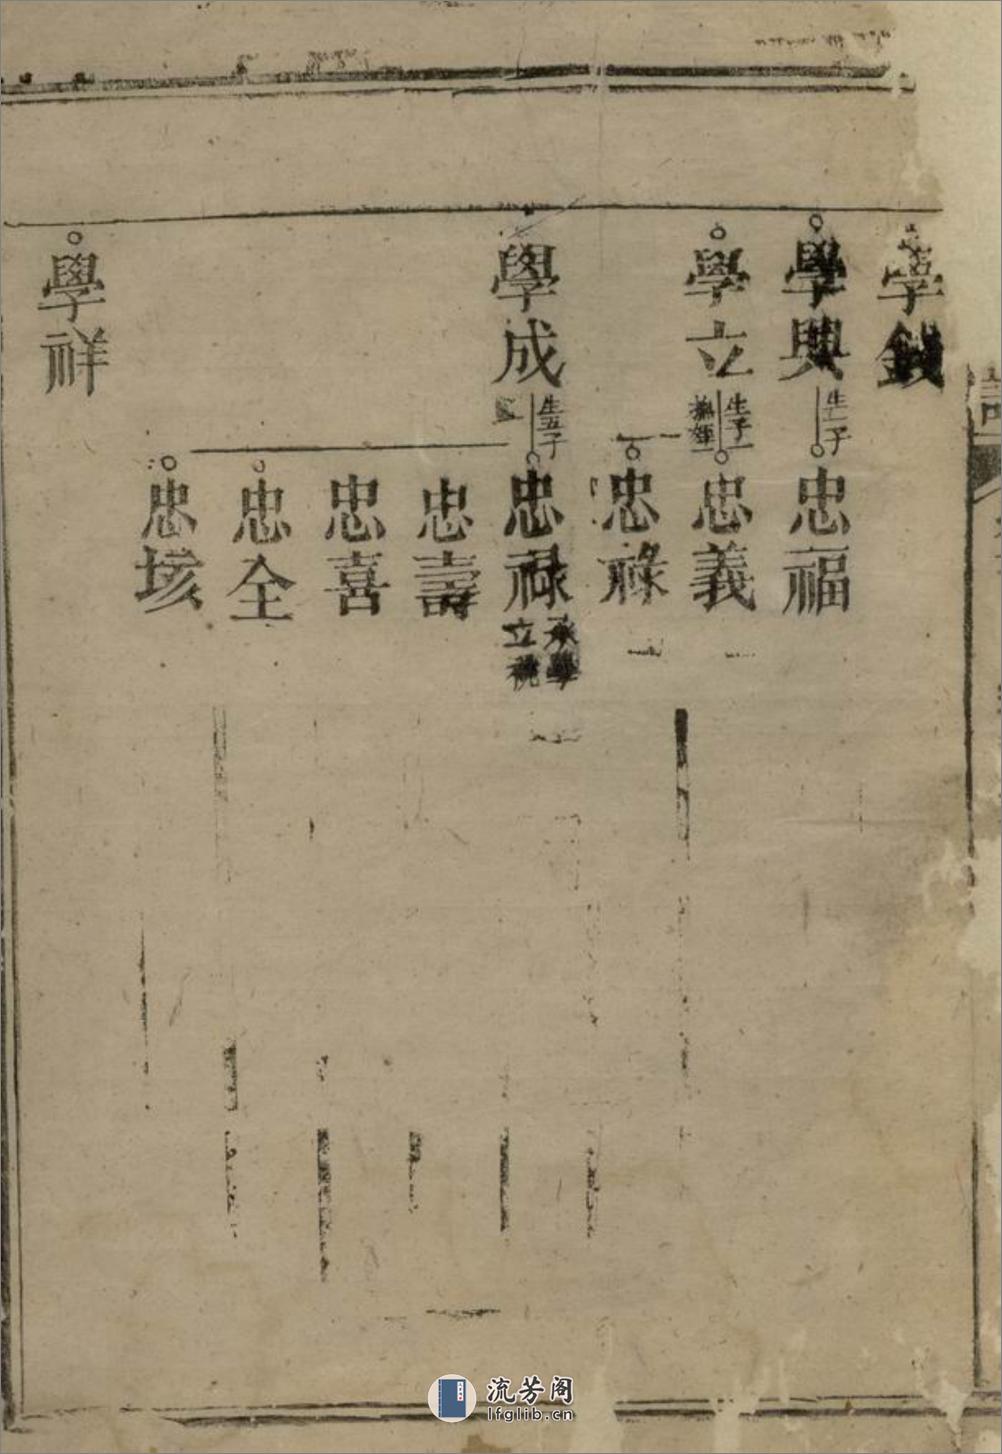 學錢
學典
生一子
忠福
學立
生子一
忠義
忠祿
學成
生五子
忠祿
承學
立祧
忠壽
忠喜
忠全
忠垓
學祥
譜
流芳阁
lfglib.cn